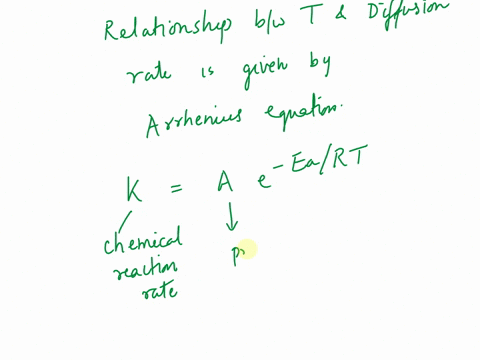 Relationship b/w T & Diffusion
rate is given by
Arrhenius equation.
K = A e^-Ea/RT
chemical
reaction
rate
p